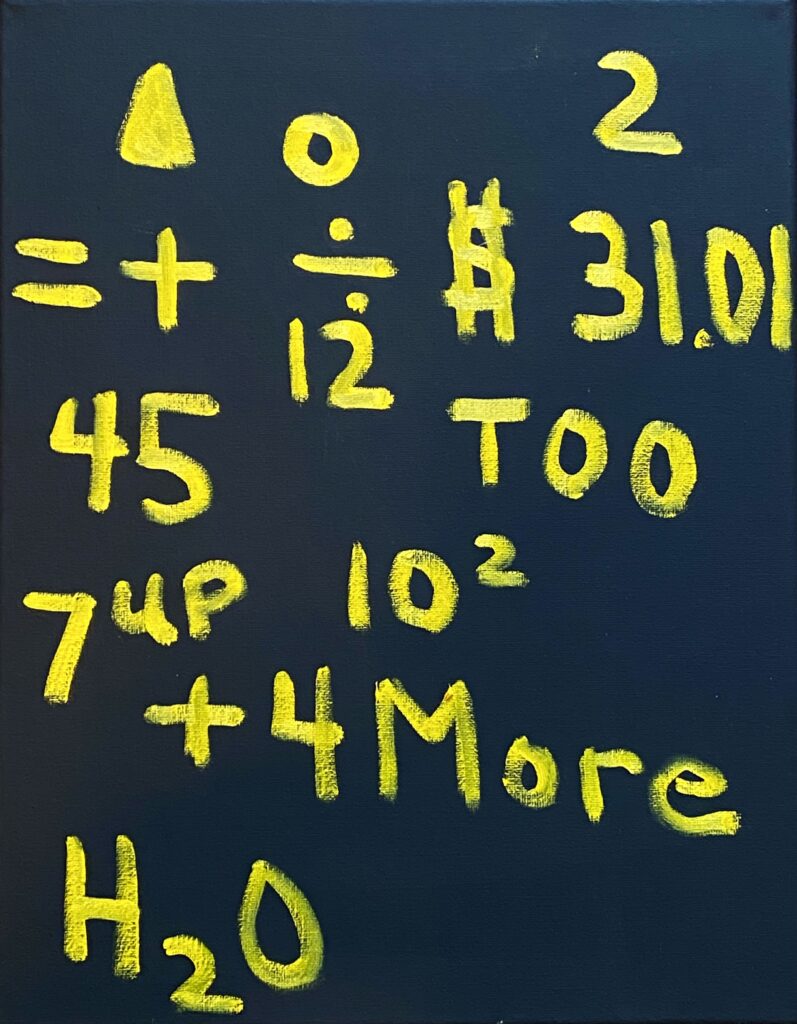 0 2
= + ÷ $ 31.01
12
45 TOO
7up 10²
+ 4 More
H₂O